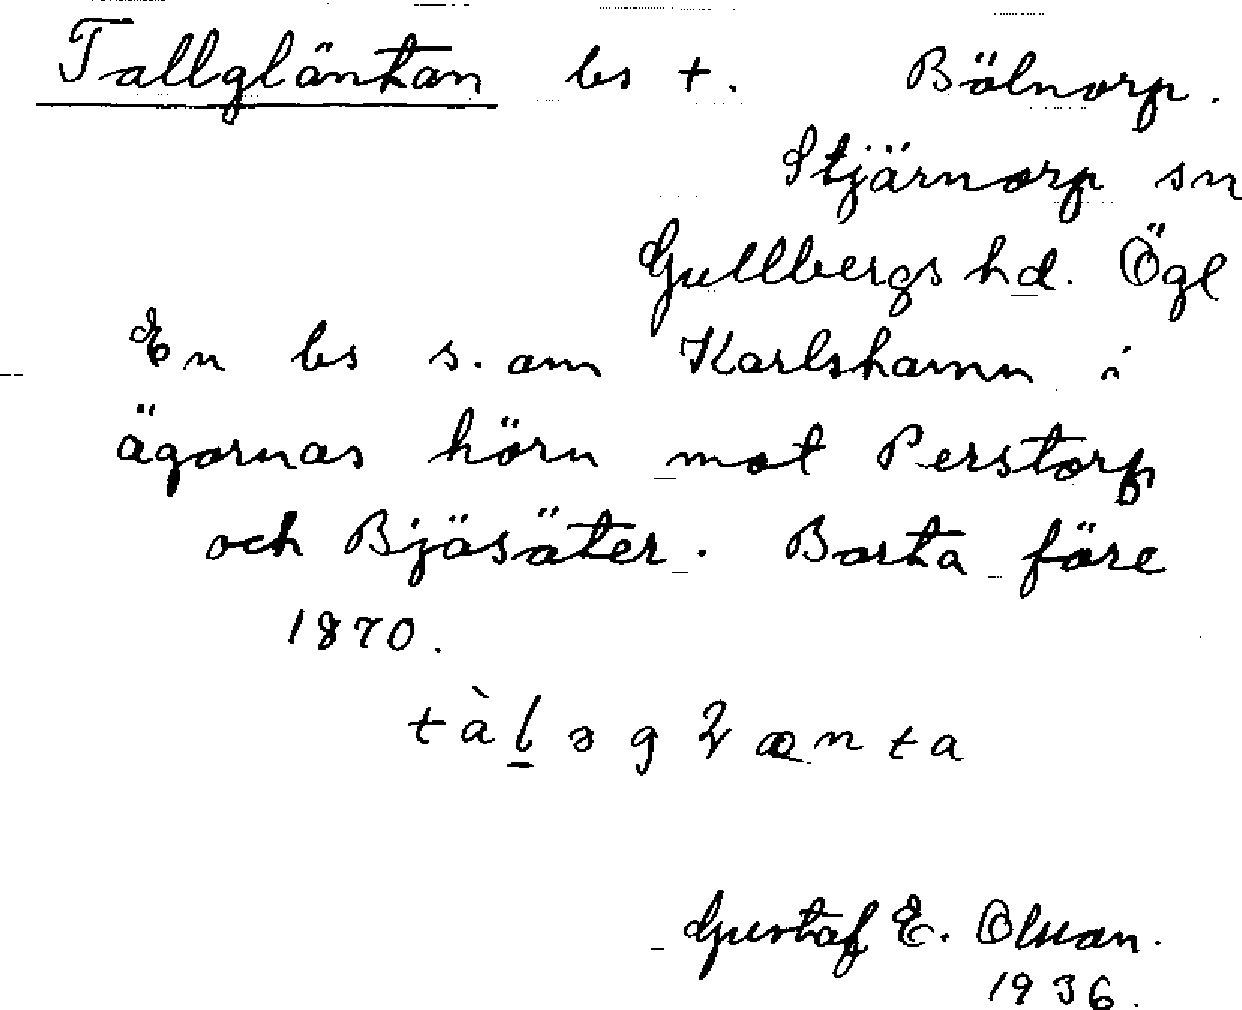 Tallgläntan bs +. Bölnorp.
Stjärnorp sn
Gullbergs hd. Ögl
En bs s. om Karlshamn i
ägornas hörn mot Perstorp
och Bjäsäter. Borta före
1870.
tàl̲əgƖænta
Gustaf E. Olsson.
1936.